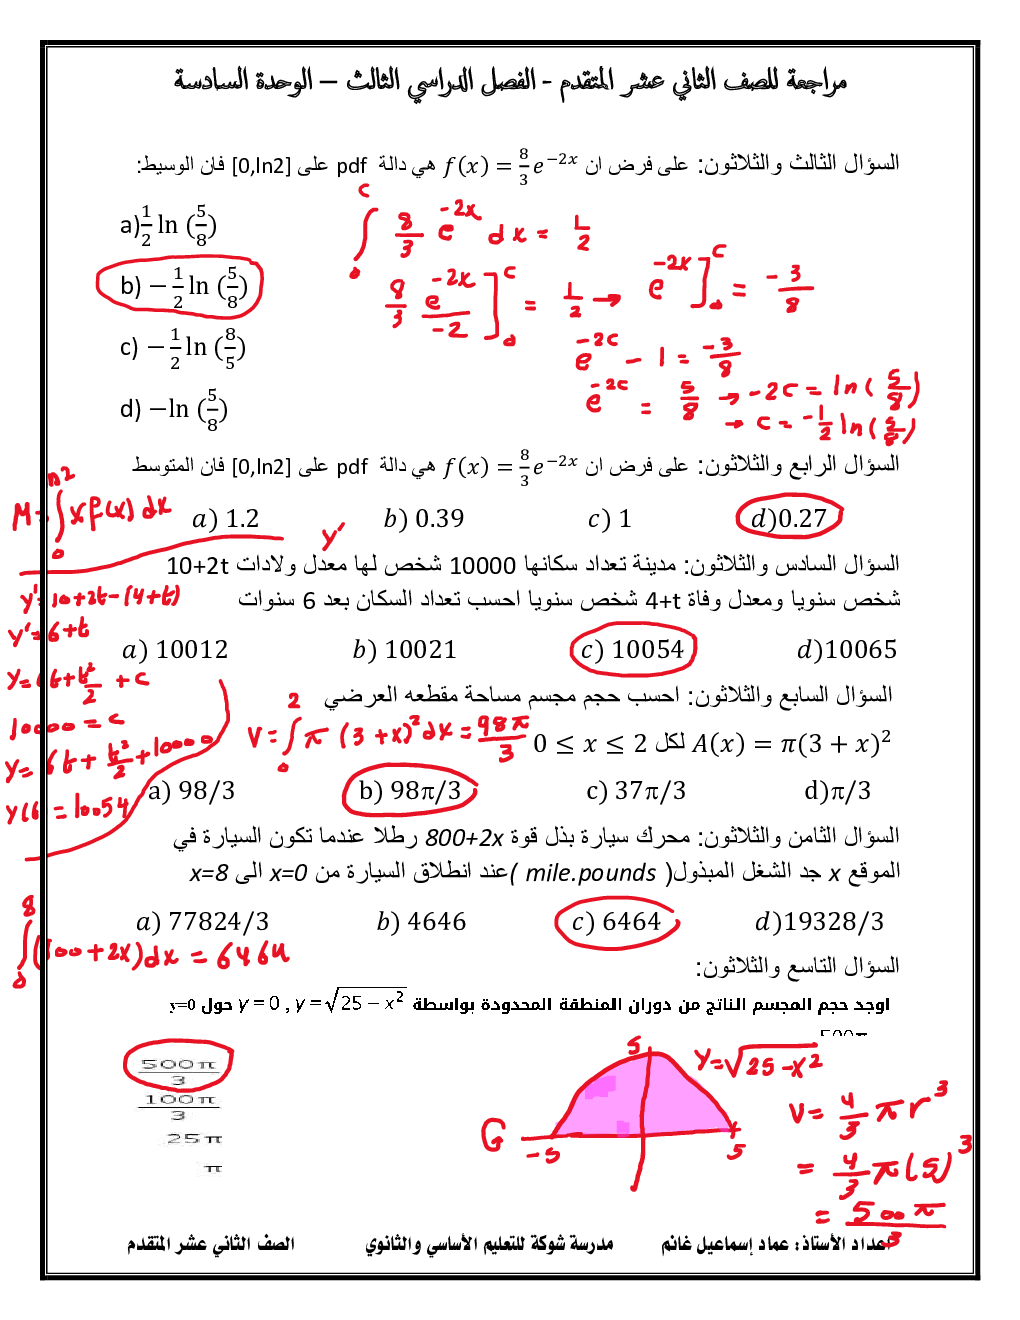 مراجعة للصف الثاني عشر المتقدم - الفصل الدراسي الثالث – الوحدة السادسة
السؤال الثالث والثلاثون: على فرض ان f(x) = 8/3 e^{-2x} هي دالة pdf على [0,ln2] فان الوسيط:
a) 1/2 ln (5/8)
b) −1/2 ln (5/8)
c) −1/2 ln (8/5)
d) −ln (5/8)
∫_0^c 8/3 e^{-2x} dx = 1/2
8/3 e^{-2x}/-2 ]_0^c = 1/2 → e^{-2x} ]_0^c = -3/8
e^{-2c} - 1 = -3/8
e^{-2c} = 5/8 → -2c = ln(5/8)
→ c = -1/2 ln(5/8)
السؤال الرابع والثلاثون: على فرض ان f(x) = 8/3 e^{-2x} هي دالة pdf على [0,ln2] فان المتوسط
M = ∫_0^{ln2} x f(x) dx
a) 1.2 b) 0.39 c) 1 d)0.27
y'
السؤال السادس والثلاثون: مدينة تعداد سكانها 10000 شخص لها معدل ولادات 10+2t
شخص سنويا ومعدل وفاة 4+t شخص سنويا احسب تعداد السكان بعد 6 سنوات
a) 10012 b) 10021 c) 10054 d)10065
y' = 10+2t-(4+t)
y' = 6+t
y = 6t + t²/2 + c
10000 = c
y = 6t + t²/2 + 10000
y(6) = 10054
السؤال السابع والثلاثون: احسب حجم مجسم مساحة مقطعه العرضي
A(x) = π(3 + x)² لكل 0 ≤ x ≤ 2
V = ∫_0^2 π (3+x)² dx = 98π/3
a) 98/3 b) 98π/3 c) 37π/3 d)π/3
السؤال الثامن والثلاثون: محرك سيارة بذل قوة 800+2x رطلا عندما تكون السيارة في
الموقع x جد الشغل المبذول( mile.pounds )عند انطلاق السيارة من x=0 الى x=8
a) 77824/3 b) 4646 c) 6464 d)19328/3
∫_0^8 (800+2x)dx = 6464
السؤال التاسع والثلاثون:
اوجد حجم المجسم الناتج من دوران المنطقة المحدودة بواسطة y = 0 , y = √(25 − x²) حول y=0
500π/3
100π/3
25π
π
5
-5
5
y = √(25-x²)
V = 4/3 π r³
= 4/3 π (5)³
= 500π/3
اعداد الأستاذ: عماد إسماعيل غانم مدرسة شوكة للتعليم الأساسي والثانوي الصف الثاني عشر المتقدم